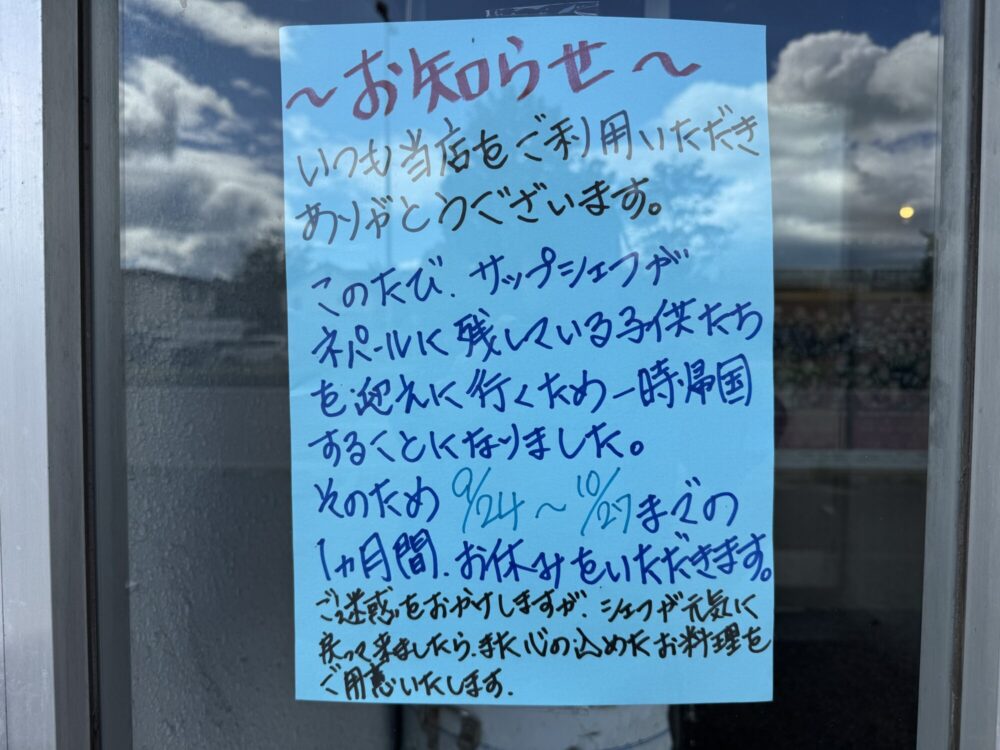 ～お知らせ～
いつも当店をご利用いただき
ありがとうございます。
このたび、サップシェフが
ネパールに残している子供たち
を迎えに行くため一時帰国
することになりました。
そのため 9/24～10/27までの
1ヵ月間、お休みをいただきます。
ご迷惑をおかけしますが、シェフが元気に
戻って来ましたら、また心の込めたお料理を
ご用意いたします.